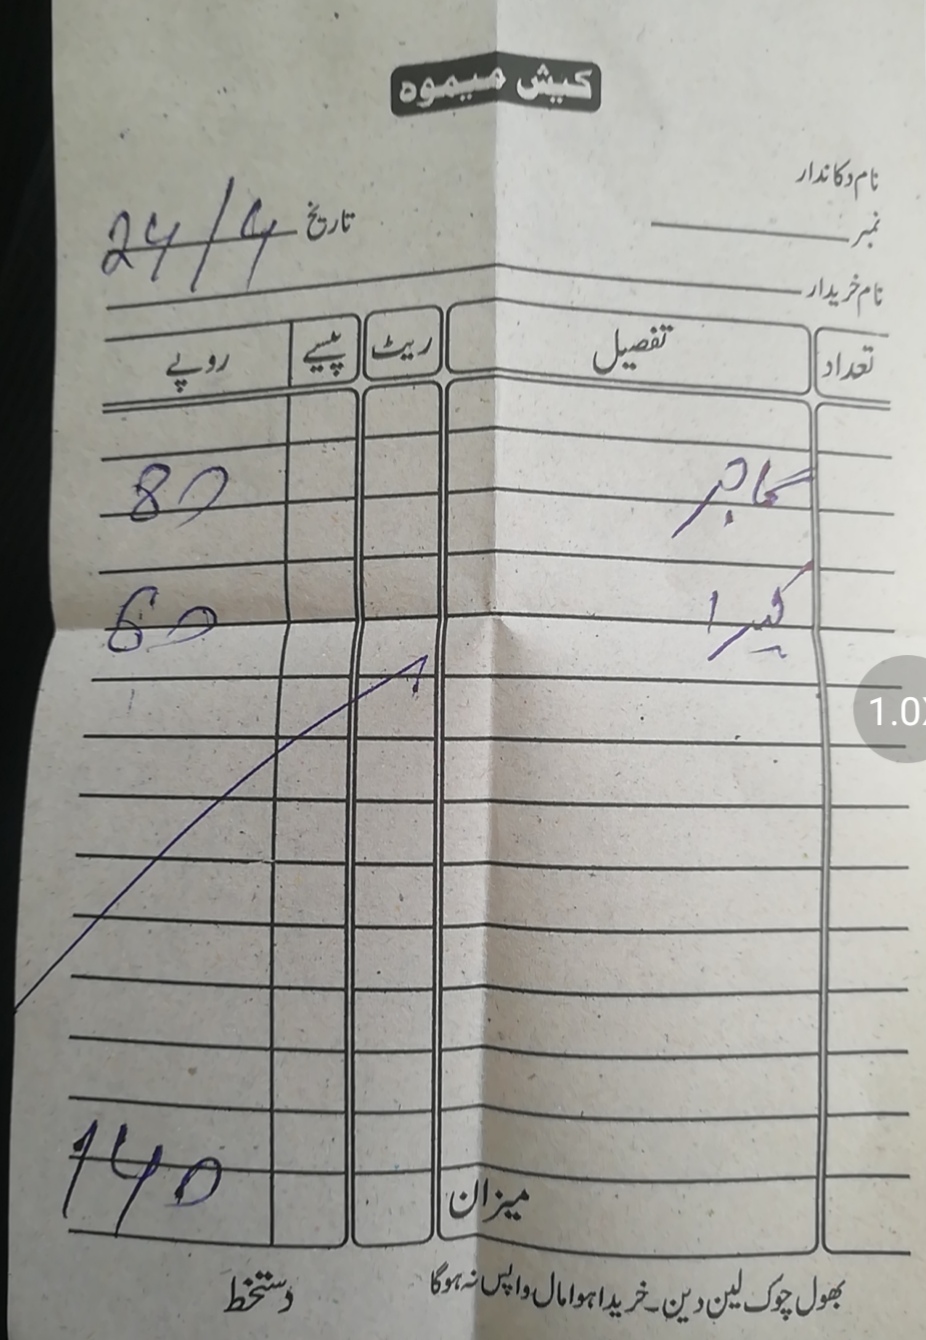 کیش میموہ
نام دکاندار
نمبر
تاریخ 24/4
نام خریدار
تعداد تفصیل ریٹ پیسے روپے
گاجر 80
کیرا 60
میزان 140
بھول چوک لین دین۔ خریدا ہوا مال واپس نہ ہوگا
دستخط
1.0X